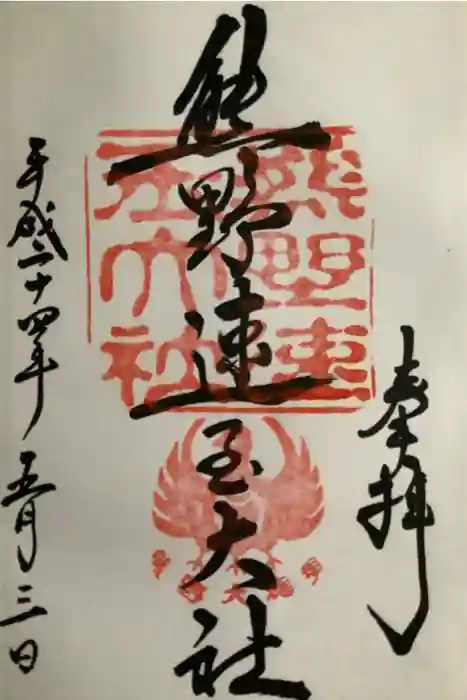 奉拝
熊野速玉大社
熊野速玉大社
平成二十四年 五月三日